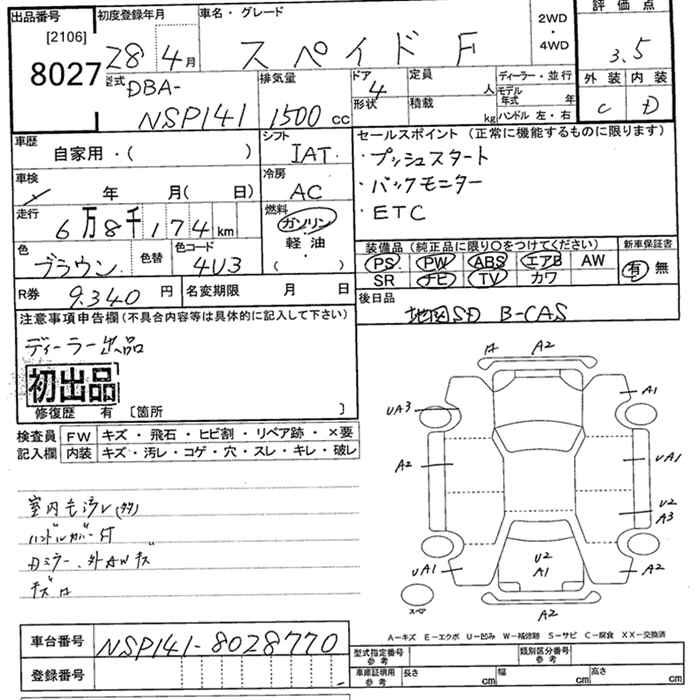 出品番号 初度登録年月 車名・グレード 2WD ・ 4WD 評価点
[2106]
8027 28年 4月 スペイド F 3.5
外装 内装
C D
型式 DBA-NSP141 排気量 1500 cc ドア 4 形状 定員 人 積載 kg ディーラー・並行 モデル年式 年 ハンドル 左・右
車歴 自家用・( ) シフト IAT セールスポイント(正常に機能するものに限ります)
・プッシュスタート
車検 年 月( 日) 冷房 AC ・バックモニター
走行 6万8千174km 燃料 ガソリン ・ETC
軽油
( )
色 ブラウン 色替 色コード 4U3
装備品(純正品に限り○をつけてください) 新車保証書
PS PW ABS エアB AW 有 無
SR ナビ TV カワ
R券 9,340円 名変期限 月 日 後日品
地図SD B-CAS
注意事項申告欄(不具合内容等は具体的に記入して下さい)
ディーラー出品
初出品
修復歴 有 〔箇所 〕
検査員記入欄 FW キズ・飛石・ヒビ割・リペア跡・×要
内装 キズ・汚レ・コゲ・穴・スレ・キレ・破レ
ハンドルカバー付
A A2
A1
UA3
A2
UA1
U2
A3
U2
A1
UA1
A2
スペア
A2
A-キズ E-エクボ U-凹み W-補修跡 S-サビ C-腐食 XX-交換済
車台番号 NSP141-8028770
型式指定番号 参考 類別区分番号 参考
登録番号
車庫証明用 参考 長さ cm 幅 cm 高さ cm